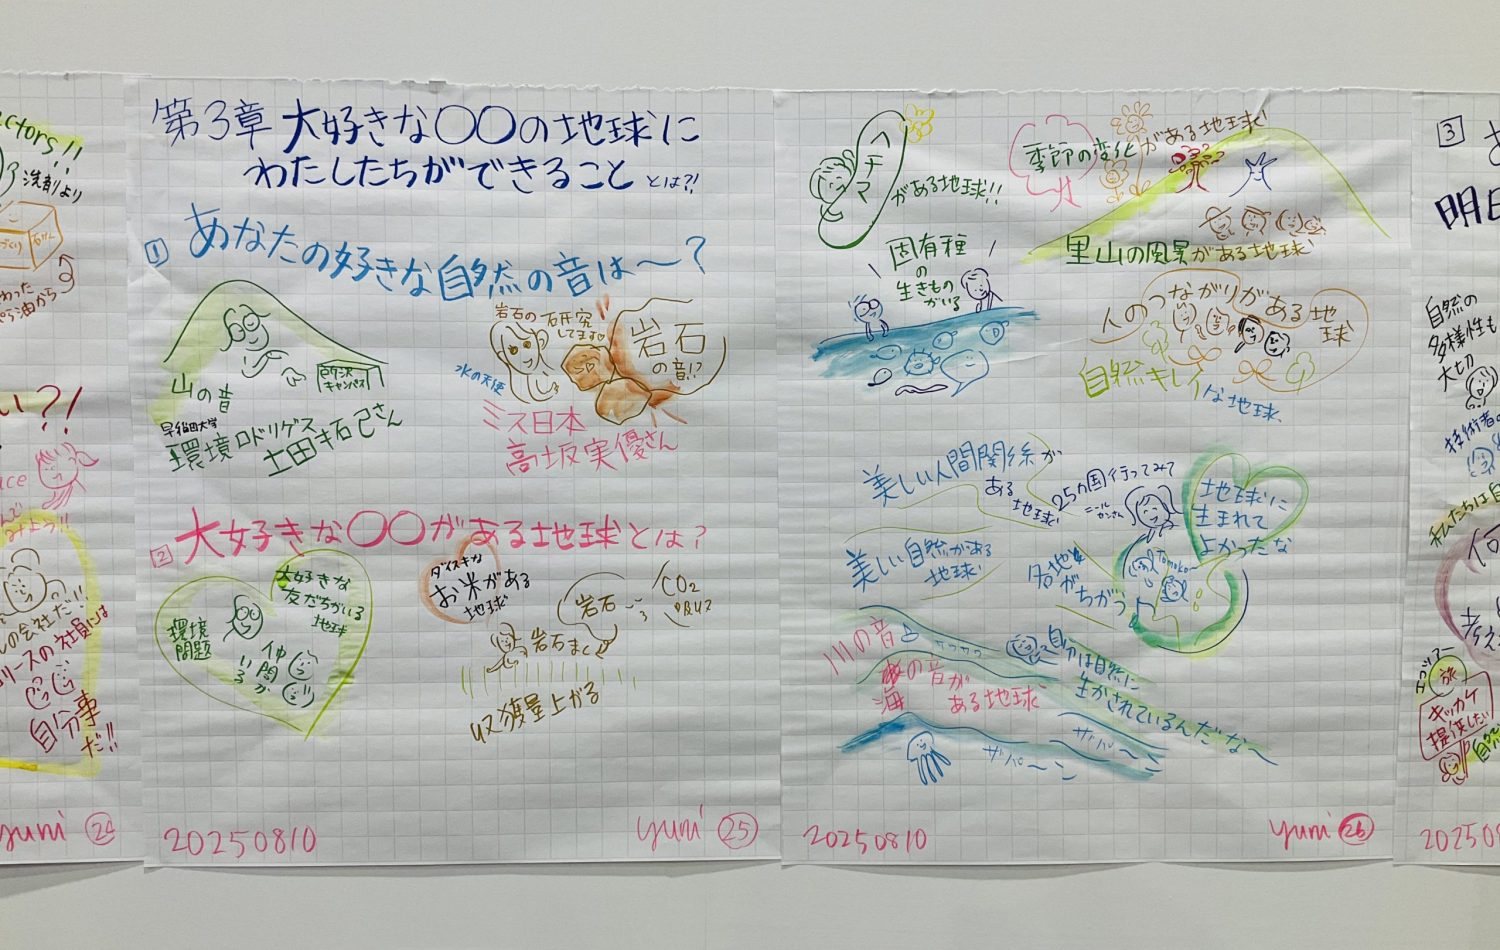 ectors!!
洗剤より
石けん
ぱら油から
い?!
uce
の会社だ!!
リースの社員には
自分事
だ!!
yuni 24
第3章 大好きな〇〇の地球に
わたしたちができること とは?!
1 あなたの好きな自然の音は〜?
山の音
所沢
キャンパス
早稲田大学
環境ロドリゲス
土田キ石己さん
岩石の研究
してます
水の天使
岩石
の音!?
ミス日本
高坂実優さん
2 大好きな〇〇がある地球とは?
環境
問題
大好きな
友だちがいる
地球
仲間が
いる
ダイスキな
お米がある
地球
岩石まく
岩石
CO2
吸収
収獲量上がる
20250810
yuni 25
ヘチマ
がある地球!!
季節の変化がある地球
里山の風景がある地球
固有種
の
生きもの
がいる
人のつながりがある地球
自然キレイな地球
美しい人間関係が
ある
地球
25カ国行ってみて
地球に
生まれて
よかったな
美しい自然がある
地球
各地
がちがう
Tomoko
川の音
サワサワ
海の音が
ある地球
自分は自然に
生かされているんだな〜
ザバ〜ン
ザバ〜ン
20250810
yuni 26
3
明日
自然の
多様性も
大切
技術者の
私たちは自
何
エコツアー
旅
キッカケ
提供したい
202508